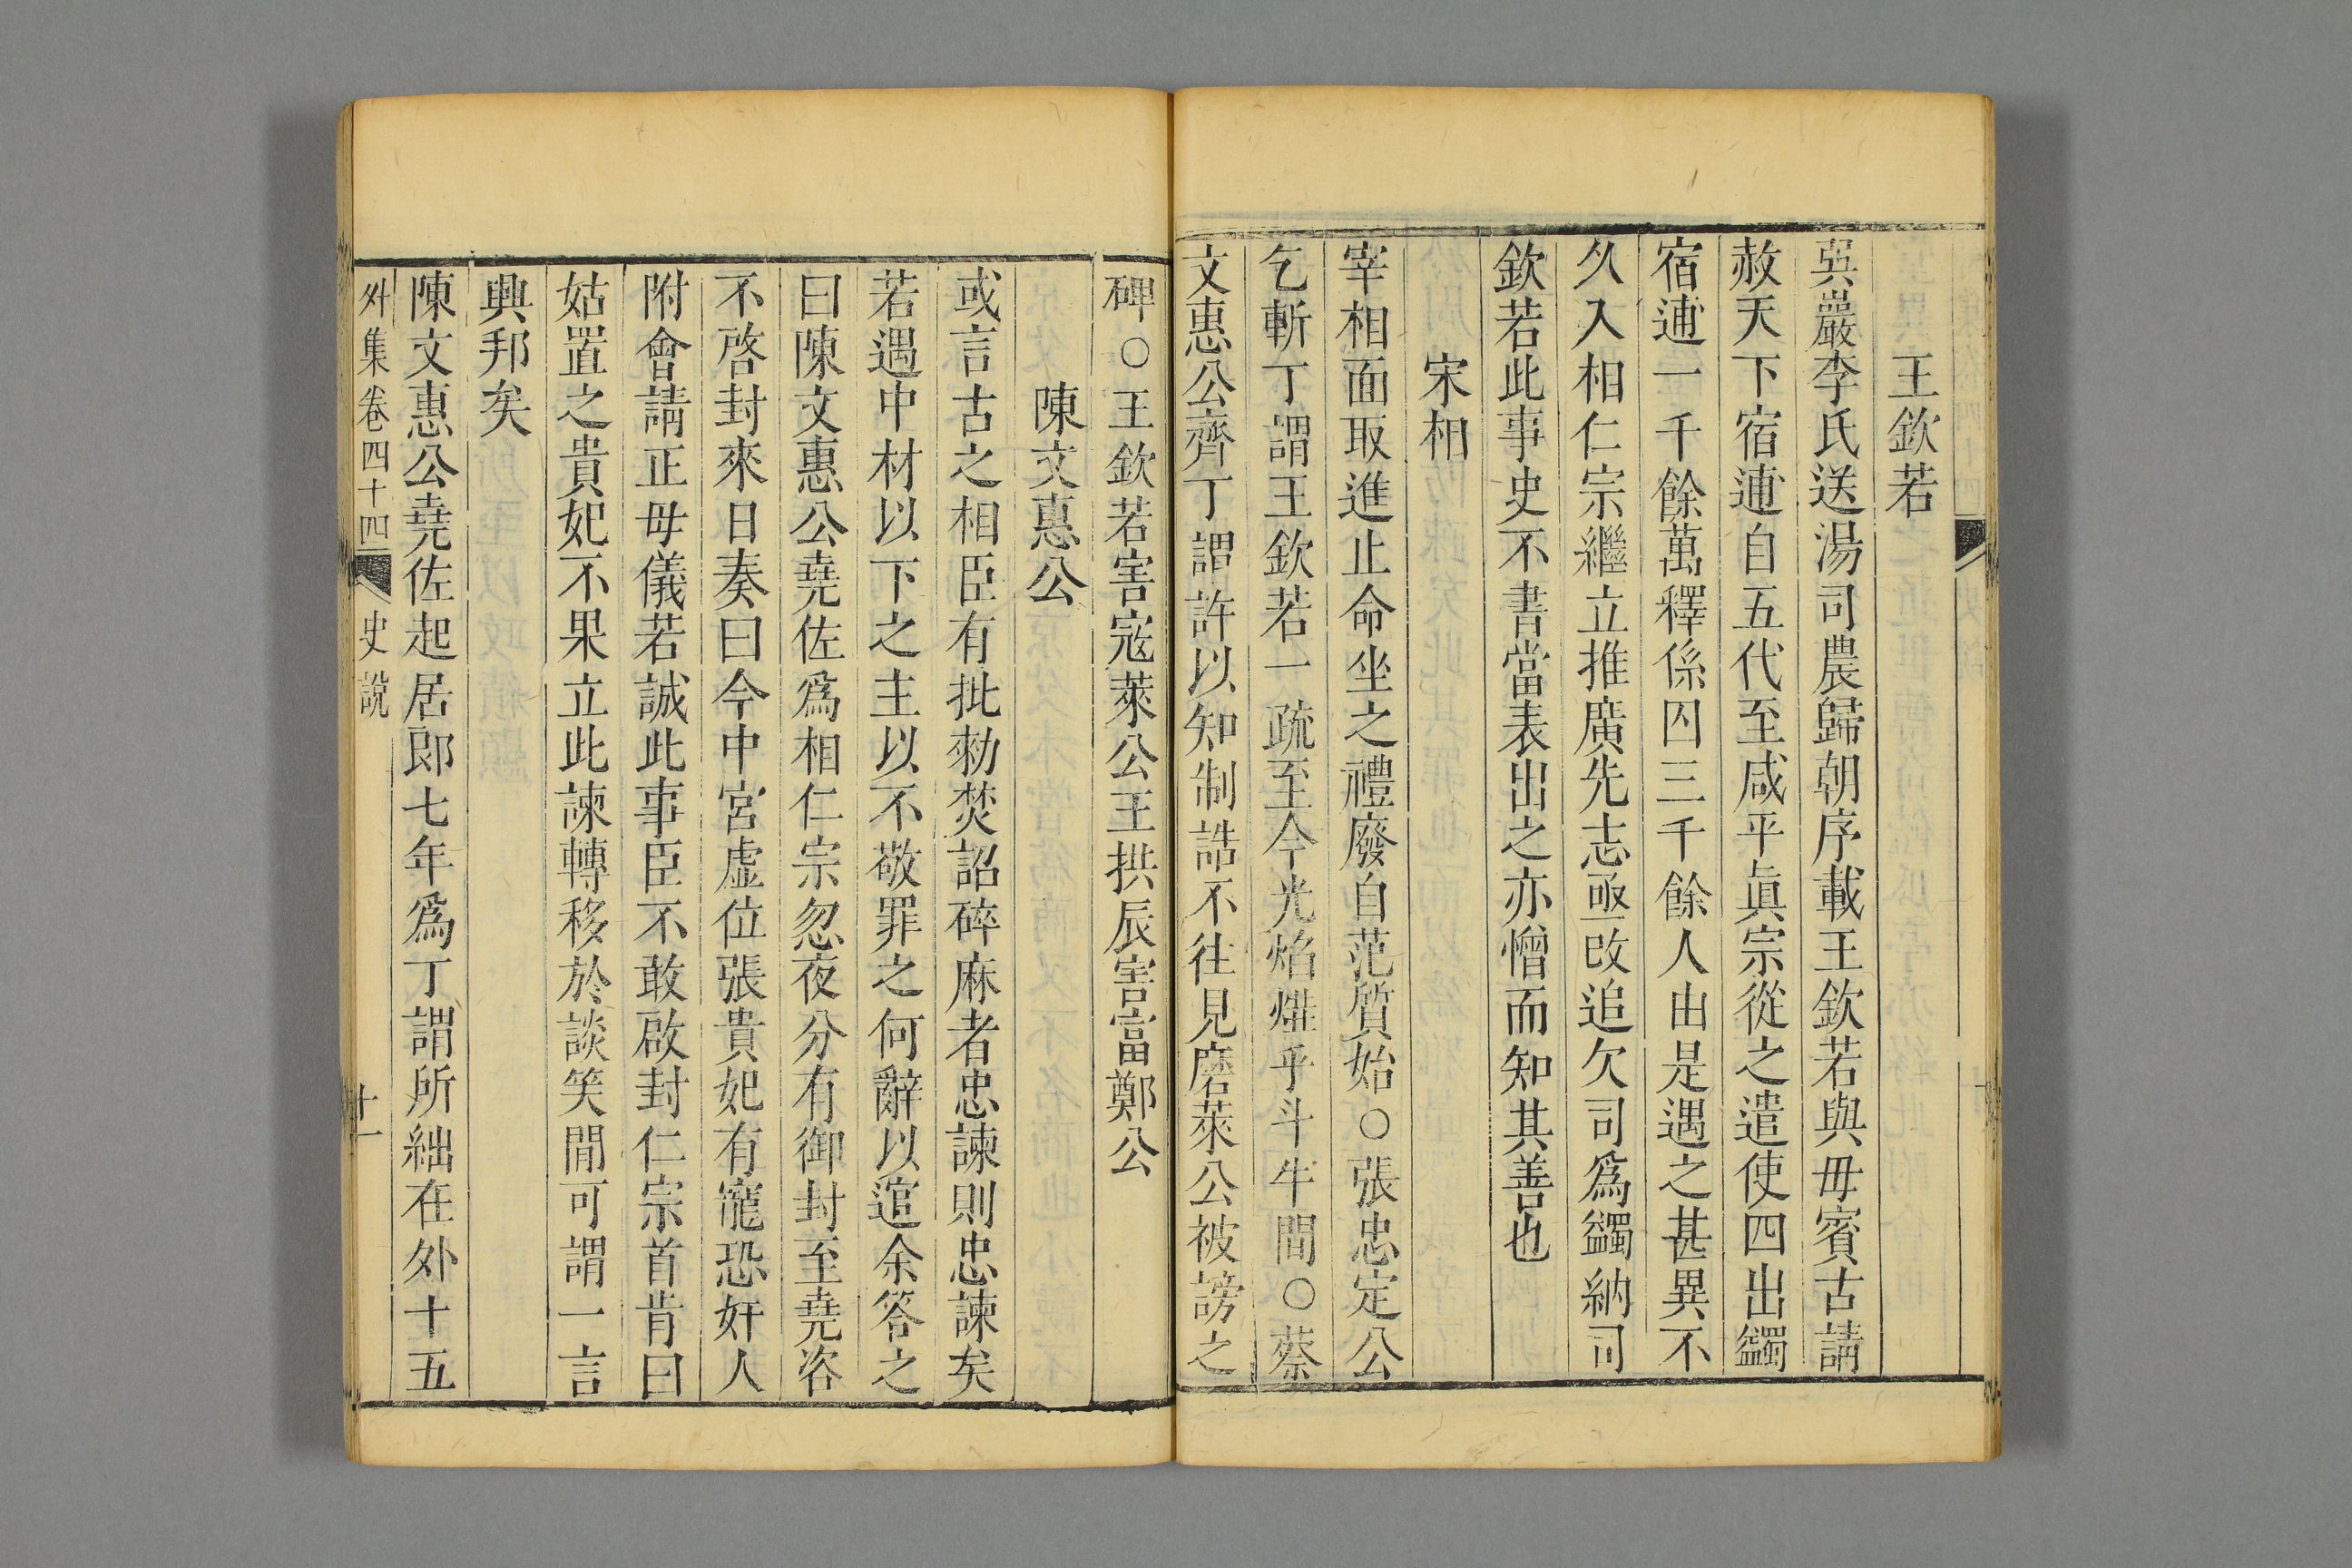 王欽若
吳巖李氏送湯司農歸朝序載王欽若與毋賓古請
赦天下宿逋自五代至咸平眞宗從之遣使四出蠲
宿逋一千餘萬釋係囚三千餘人由是遇之甚異不
久入相仁宗繼立推廣先志亟攺追欠司爲蠲納司
欽若此事史不書當表出之亦憎而知其善也
宋相
宰相面取進止命坐之禮廢自范質始○張忠定公
乞斬丁謂王欽若一疏至今光焰燁乎斗牛間○蔡
文惠公齊丁謂許以知制誥不往見磨萊公被謗之
碑○王欽若害寇萊公王拱辰害富鄭公
陳文惠公
或言古之相臣有批勑焚詔碎麻者忠諫則忠諫矣
若遇中材以下之主以不敬罪之何辭以逭余答之
曰陳文惠公堯佐爲相仁宗忽夜分有御封至堯咨
不啓封來日奏曰今中宮虛位張貴妃有寵恐奸人
附會請正毋儀若誠此事臣不敢啟封仁宗首肯曰
姑置之貴妃不果立此諫轉移於談笑間可謂一言
興邦矣
陳文惠公堯佐起居郎七年爲丁謂所絀在外十五
外集卷四十四 史說 十一